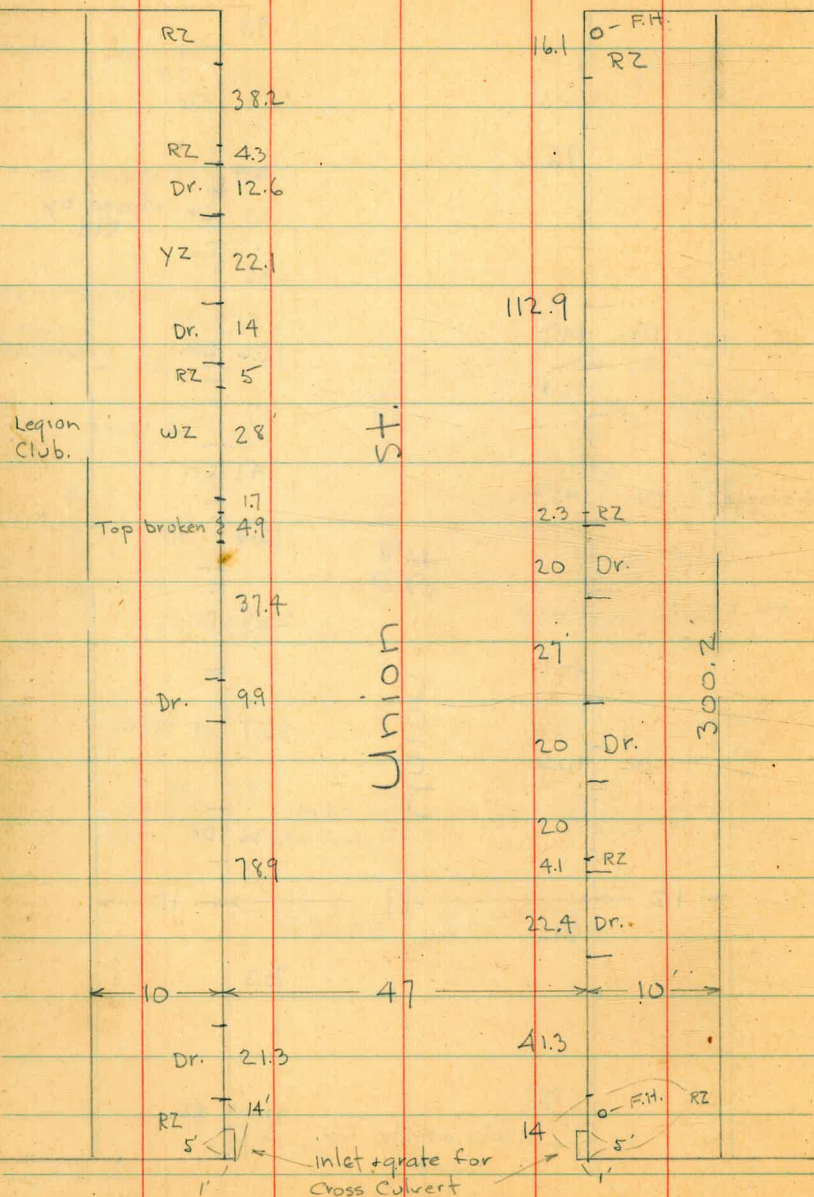 RZ
38.2
RZ 4.3
Dr. 12.6
YZ 22.1
Dr. 14
RZ 5
Legion
Club.
WZ 28'
1.7
Top broken 4.9
37.4
Dr. 9.9
78.9
10
Dr. 21.3
14'
RZ
5'
1'
Union St.
47
inlet & grate for
Cross Culvert
F.H.
16.1 RZ
112.9
2.3 RZ
20 Dr.
27'
20 Dr.
20
4.1 RZ
22.4 Dr.
10'
41.3
F.H. RZ
14
5'
1'
300.2'